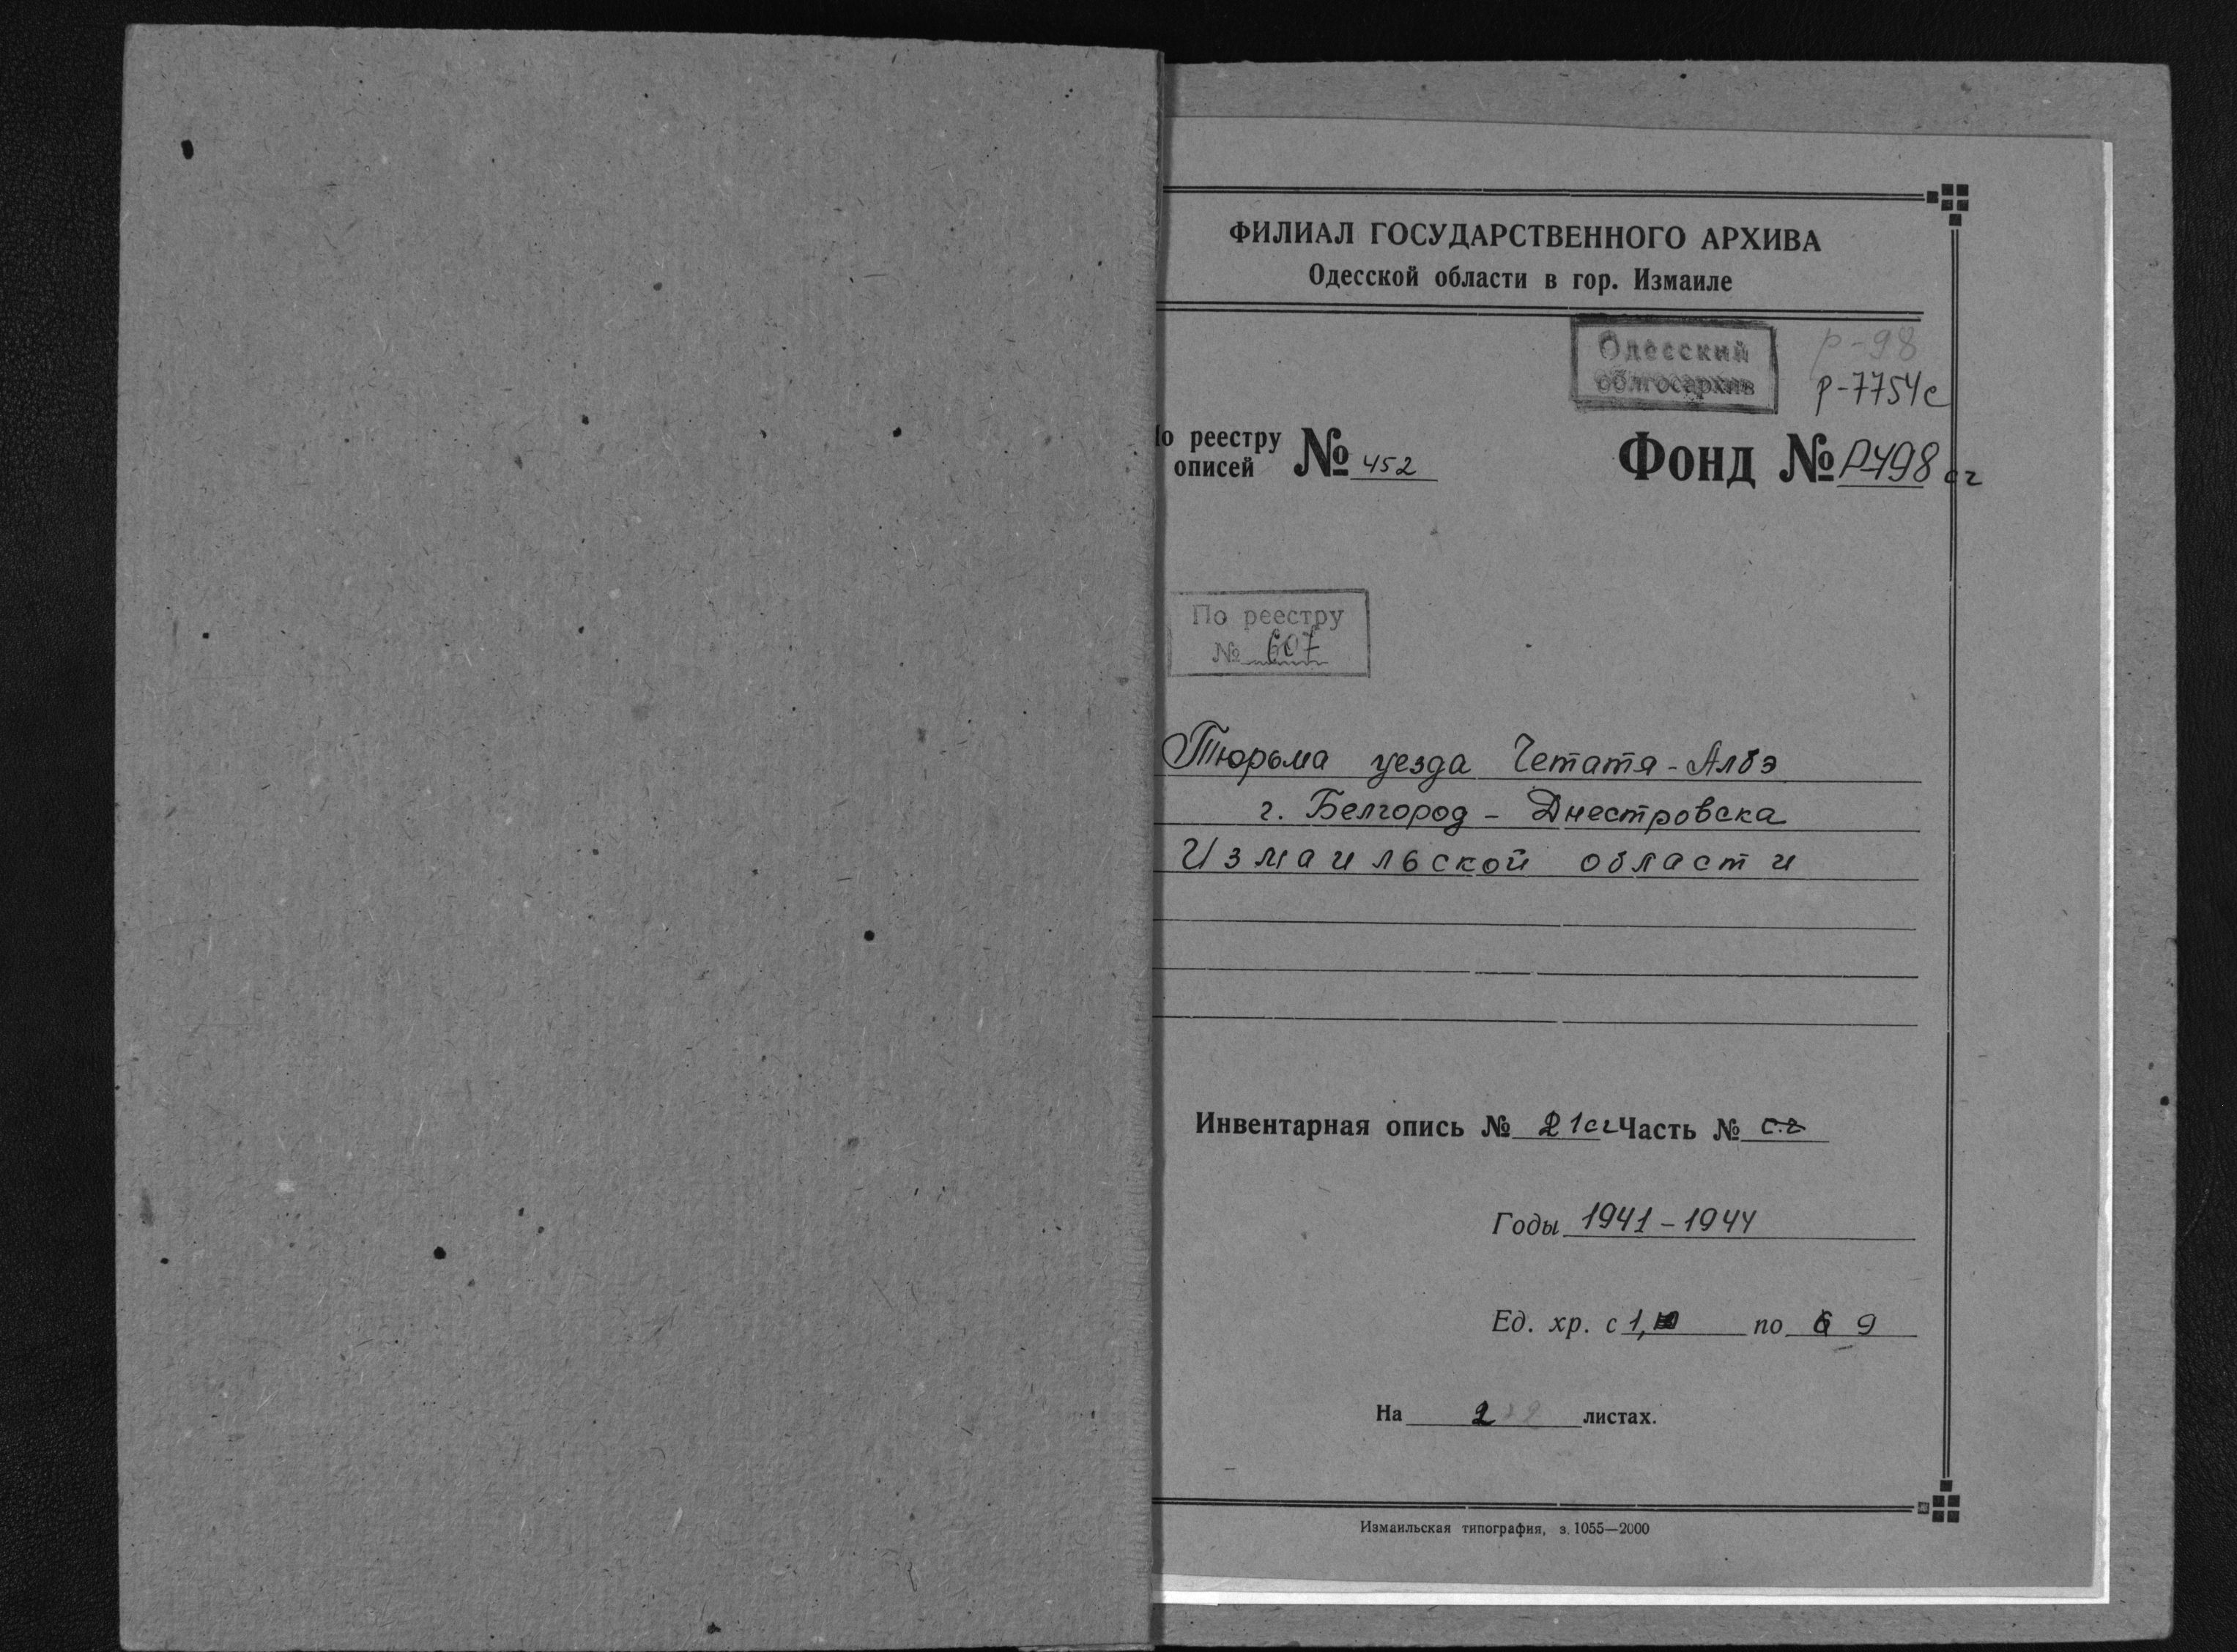 ФИЛИАЛ ГОСУДАРСТВЕННОГО АРХИВА
Одесской области в гор. Измаиле
Одесский
облгосархив
р-98
р-7754с
о реестру
описей № 452
Фонд № Р-498 сг
По реестру
№ 607
Тюрьма уезда Четатя-Албэ
г. Белгород - Днестровска
Измаильской области
Инвентарная опись № 21сг Часть № с.г
Годы 1941-1944
Ед. хр. с 1, по 69
На 2 листах.
Измаильская типография, з. 1055—2000